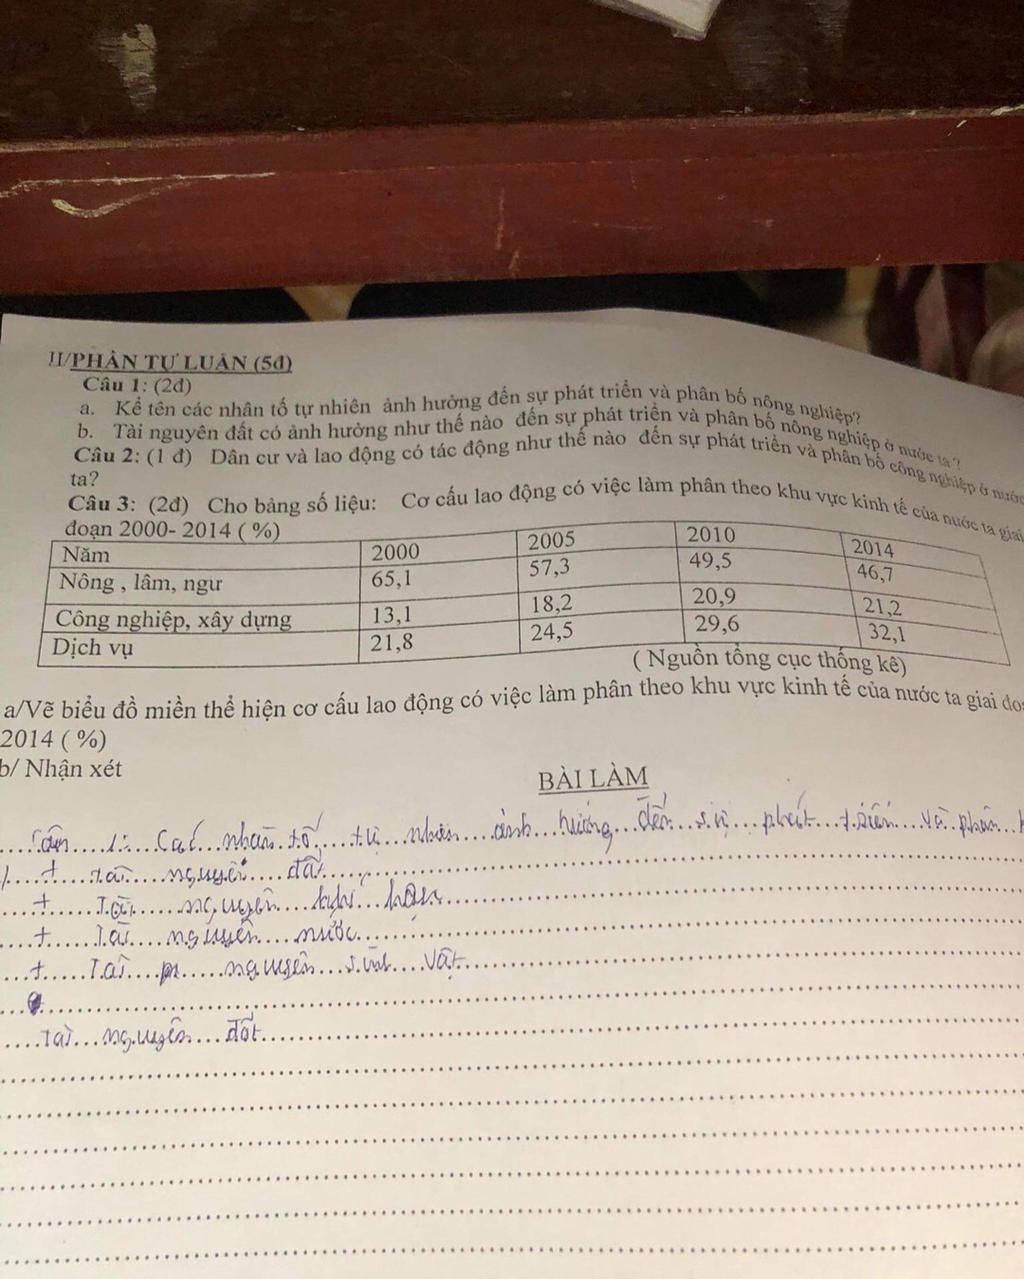 II/PHẦN TỰ LUẬN (5đ)
Câu 1: (2đ)
a. Kể tên các nhân tố tự nhiên ảnh hưởng đến sự phát triển và phân bố nông nghiệp?
b. Tài nguyên đất có ảnh hưởng như thế nào đến sự phát triển và phân bố nông nghiệp ở nước ta?
Câu 2: (1 đ) Dân cư và lao động có tác động như thế nào đến sự phát triển và phân bố công nghiệp ở nước
ta?
Câu 3: (2đ) Cho bảng số liệu: Cơ cấu lao động có việc làm phân theo khu vực kinh tế của nước ta giai
đoạn 2000- 2014 ( %)
Năm 2000 2005 2010 2014
Nông , lâm, ngư 65,1 57,3 49,5 46,7
Công nghiệp, xây dựng 13,1 18,2 20,9 21,2
Dịch vụ 21,8 24,5 29,6 32,1
( Nguồn tổng cục thống kê)
a/Vẽ biểu đồ miền thể hiện cơ cấu lao động có việc làm phân theo khu vực kinh tế của nước ta giai
2014 ( %)
b/ Nhận xét
BÀI LÀM
Câu 1: Các nhân tố tự nhiên ảnh hưởng đến sự phát triển và phân
+ Tài nguyên đất
+ Tài nguyên khí hậu
+ Tài nguyên nước
+ Tài nguyên sinh vật
Tài nguyên đất